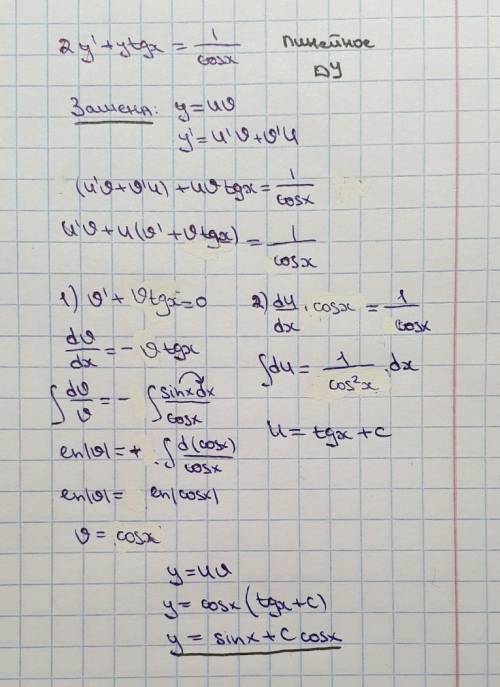 2y' + y tgx = 1/cosx линейное ДУ
Замена: y = uv
y' = u'v + v'u
(u'v + v'u) + uv tgx = 1/cosx
u'v + u(v' + v tgx) = 1/cosx
1) v' + v tgx = 0
dv/dx = - v tgx
∫ dv/v = - ∫ sinx dx/cosx
ln|v| = + ∫ d(cosx)/cosx
ln|v| = ln|cosx|
v = cosx
2) du/dx · cosx = 1/cosx
∫ du = 1/cos²x · dx
u = tgx + c
y = uv
y = cosx (tgx + c)
y = sinx + c cosx